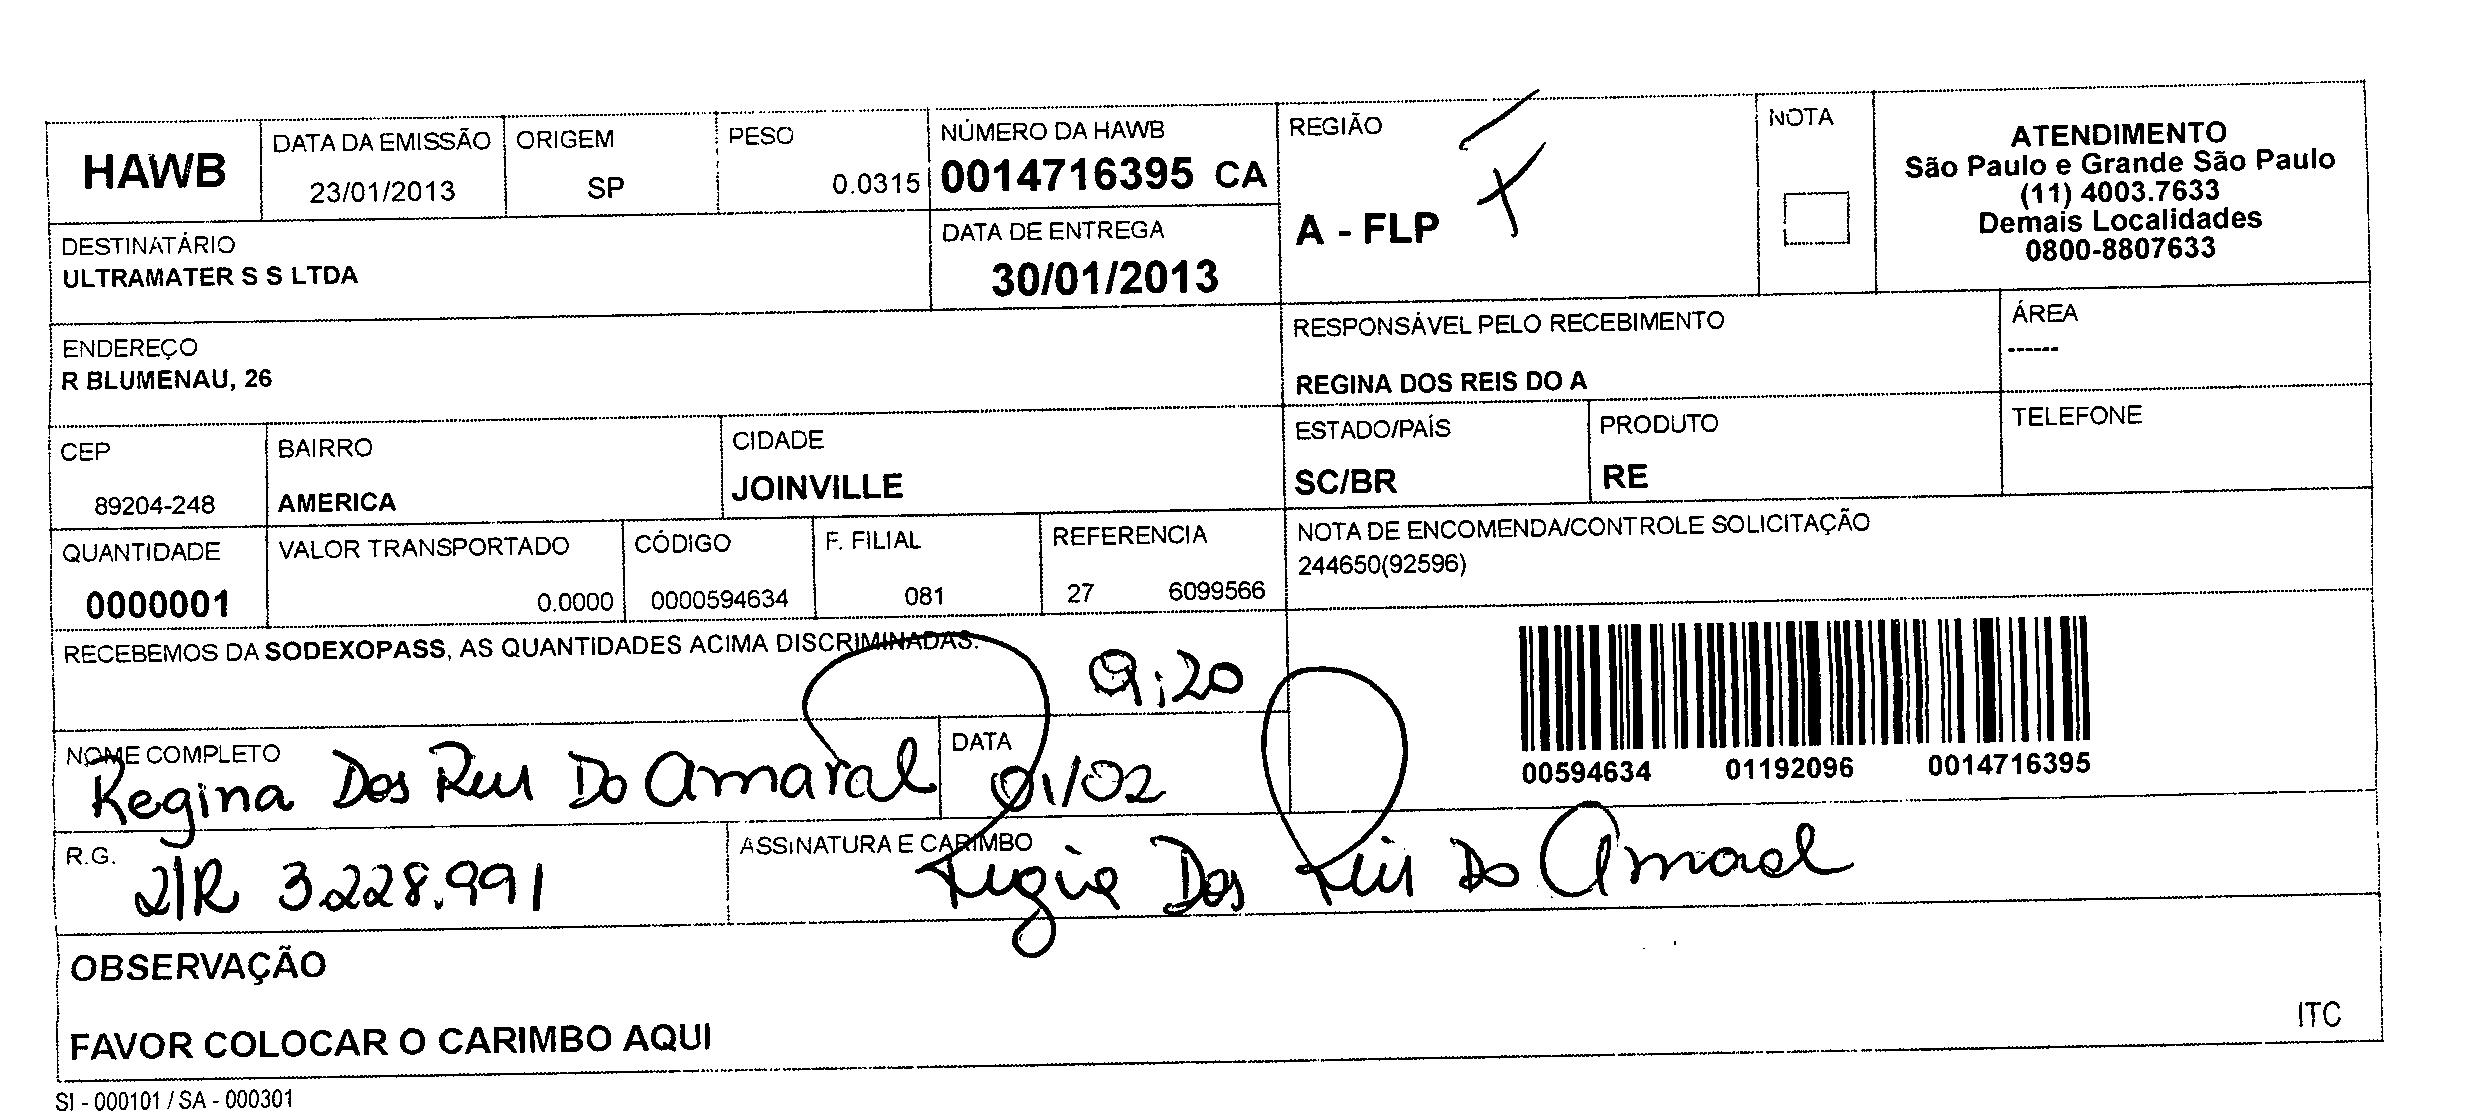 HAWB
DATA DA EMISSÃO
23/01/2013
ORIGEM
SP
PESO
0.0315
NÚMERO DA HAWB
0014716395 CA
REGIÃO
A - FLP
NOTA
ATENDIMENTO
São Paulo e Grande São Paulo
(11) 4003.7633
Demais Localidades
0800-8807633
DESTINATÁRIO
ULTRAMATER S S LTDA
DATA DE ENTREGA
30/01/2013
ENDEREÇO
R BLUMENAU, 26
RESPONSÁVEL PELO RECEBIMENTO
REGINA DOS REIS DO A
ÁREA
------
CEP
89204-248
BAIRRO
AMERICA
CIDADE
JOINVILLE
ESTADO/PAÍS
SC/BR
PRODUTO
RE
TELEFONE
QUANTIDADE
0000001
VALOR TRANSPORTADO
0.0000
CÓDIGO
0000594634
F. FILIAL
081
REFERENCIA
27 6099566
NOTA DE ENCOMENDA/CONTROLE SOLICITAÇÃO
244650(92596)
RECEBEMOS DA SODEXOPASS, AS QUANTIDADES ACIMA DISCRIMINADAS.
9:20
00594634 01192096 0014716395
NOME COMPLETO
Regina Dos Reis Do Amaral
DATA
01/02
R.G.
2/R 3.228.991
ASSINATURA E CARIMBO
Regina Dos Reis Do Amaral
OBSERVAÇÃO
FAVOR COLOCAR O CARIMBO AQUI
ITC
SI - 000101 / SA - 000301